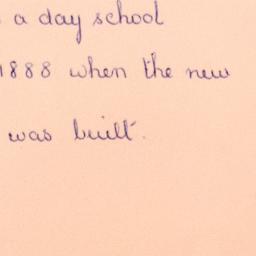 a day school
1888 when the new
was built.